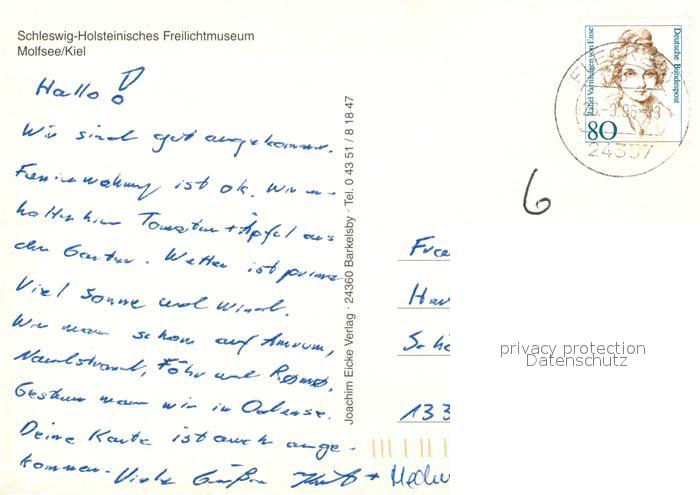 Schleswig-Holsteinisches Freilichtmuseum
Molfsee/Kiel
Hallo!
Wir sind gut angekommen.
Ferienwohnung ist ok. Wir
hier Tomaten + Äpfel aus
den Garten. Wetter ist prima
Viel Sonne und Wind.
Wir waren schon auf Amrum,
Nordstrand, Föhr und Rømø.
Gestern waren wir in Odense.
Deine Karte ist auch ange-
kommen. Viele Grüße
Joachim Ecke Verlag · 24360 Barkelsby · Tel. 0 43 51 / 8 18 47
Rahel Varnhagen von Ense
Deutsche Bundespost
80
6
133
privacy protection
Datenschutz